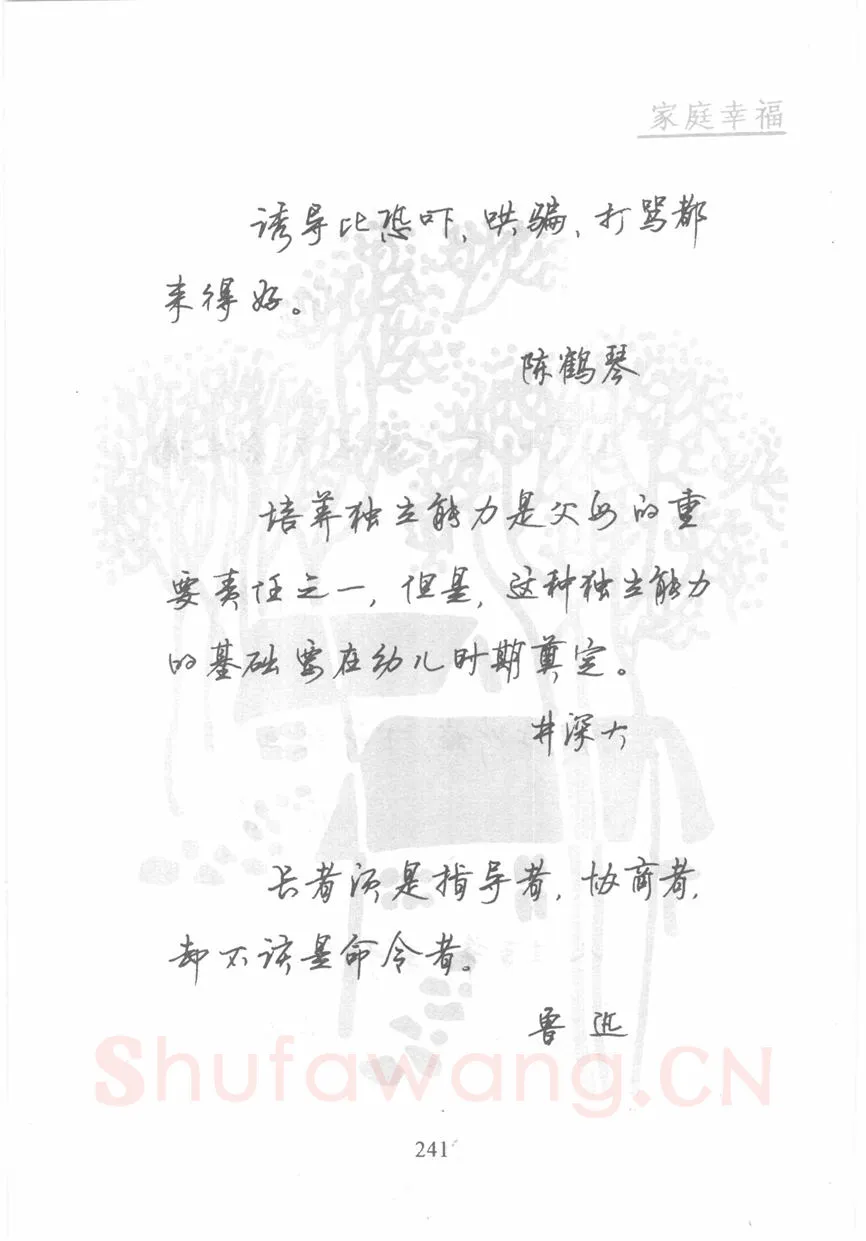 家庭幸福
诱导比恐吓、哄骗、打骂都
来得好。
陈鹤琴
培养独立能力是父母的重
要责任之一，但是，这种独立能力
的基础要在幼儿时期奠定。
井深大
长者须是指导者，协商者，
却不该是命令者。
鲁迅
Shufawang.CN
241